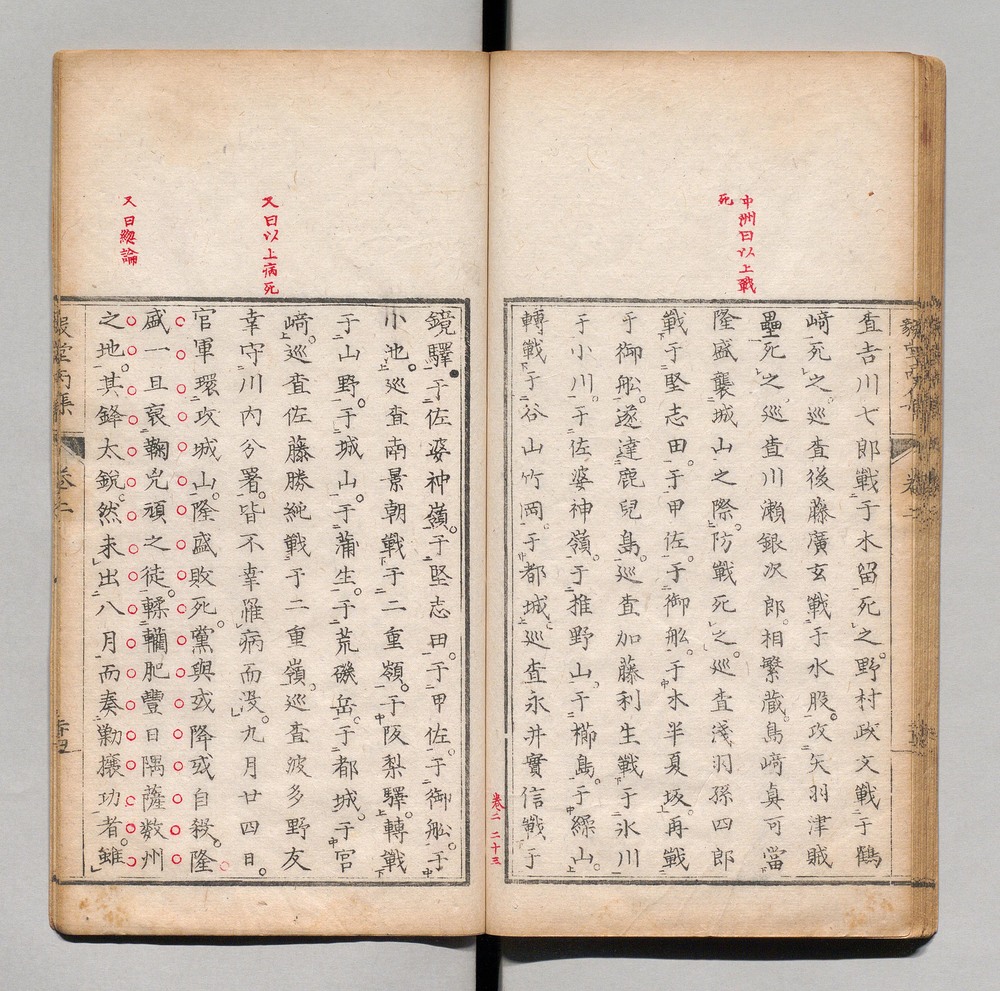 中洲曰以上戰
死
査吉川七郎戰于水留死之野村政文戰于鶴
﨑死之巡査後藤廣玄戰于水股攻矢羽津賊
壘死之巡査川瀨銀次郎相繁蔵島﨑眞可當
隆盛襲城山之際防戰死之巡査淺羽孫四郎
戰于堅志田于甲佐于御船于木半夏坂再戰
于御船遂達鹿兒島巡査加藤利生戰于氷川
于小川于佐婆神嶺于推野山于櫛島于繰山
轉戰于谷山竹岡于都城巡査永井實信戰于
卷二 二十三
又曰以上病死
又曰緫論
鏡驛于佐婆神嶺于堅志田于甲佐于御船于
小池巡査南景朝戰于二重嶺于阪梨驛轉戰
于山野于城山于蒲生于荒磯岳于都城于宮
﨑巡査佐藤勝純戰于二重嶺巡査波多野友
幸守川内分署皆不幸罹病而没九月廿四日
官軍環攻城山隆盛敗死黨與或降或自殺隆
盛一旦裒鞠兇頑之徒轔肥豐日隅薩数州
之地其鋒太銳然未出八月而奏勦攘功者雖
卷二